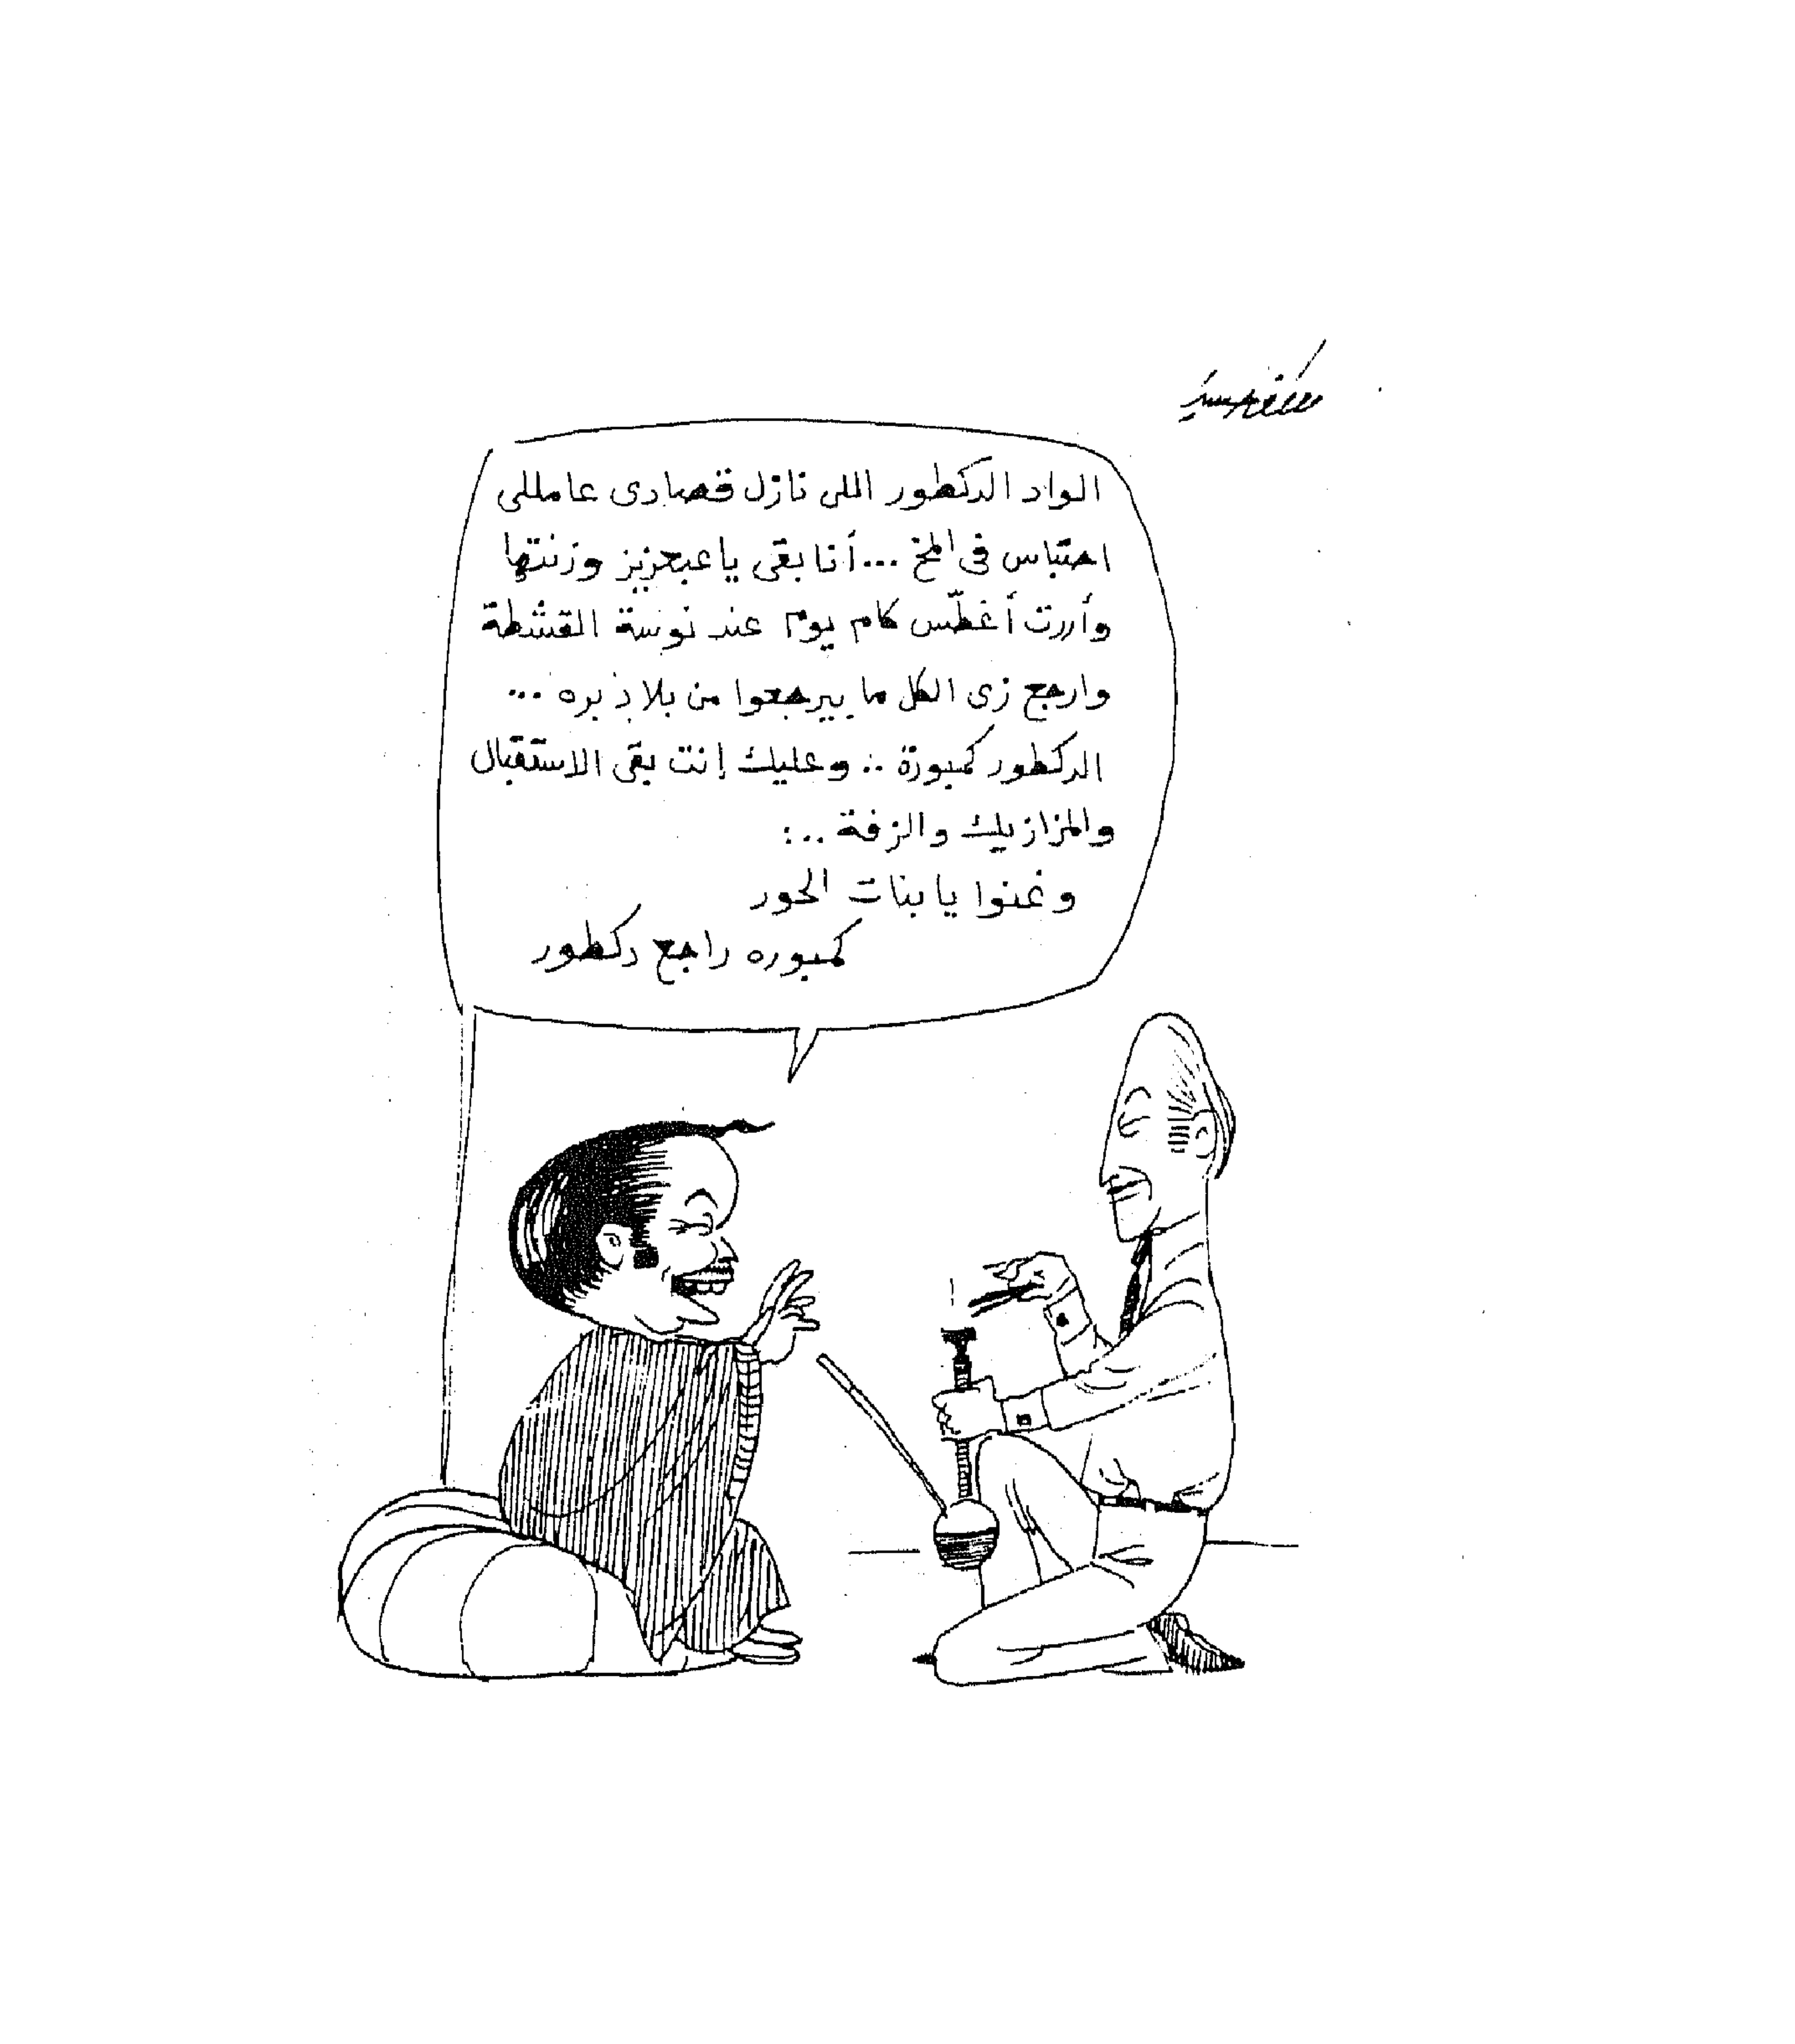 الواد الدكطور اللى نازل قصادى عامللى
احتباس فى المخ ... أنا بقى يا عبعزيز وزنتها
وأررت أغطّس كام يوم عند نوسة القشطة
وارجع زى الكل ما بيرجعوا من بلاد بره ...
الدكطور كمبورة .. وعليك إنت بقى الاستقبال
والمزازيك والزفة ..:
وغنوا يا بنات الحور
كمبوره راجع دكطور